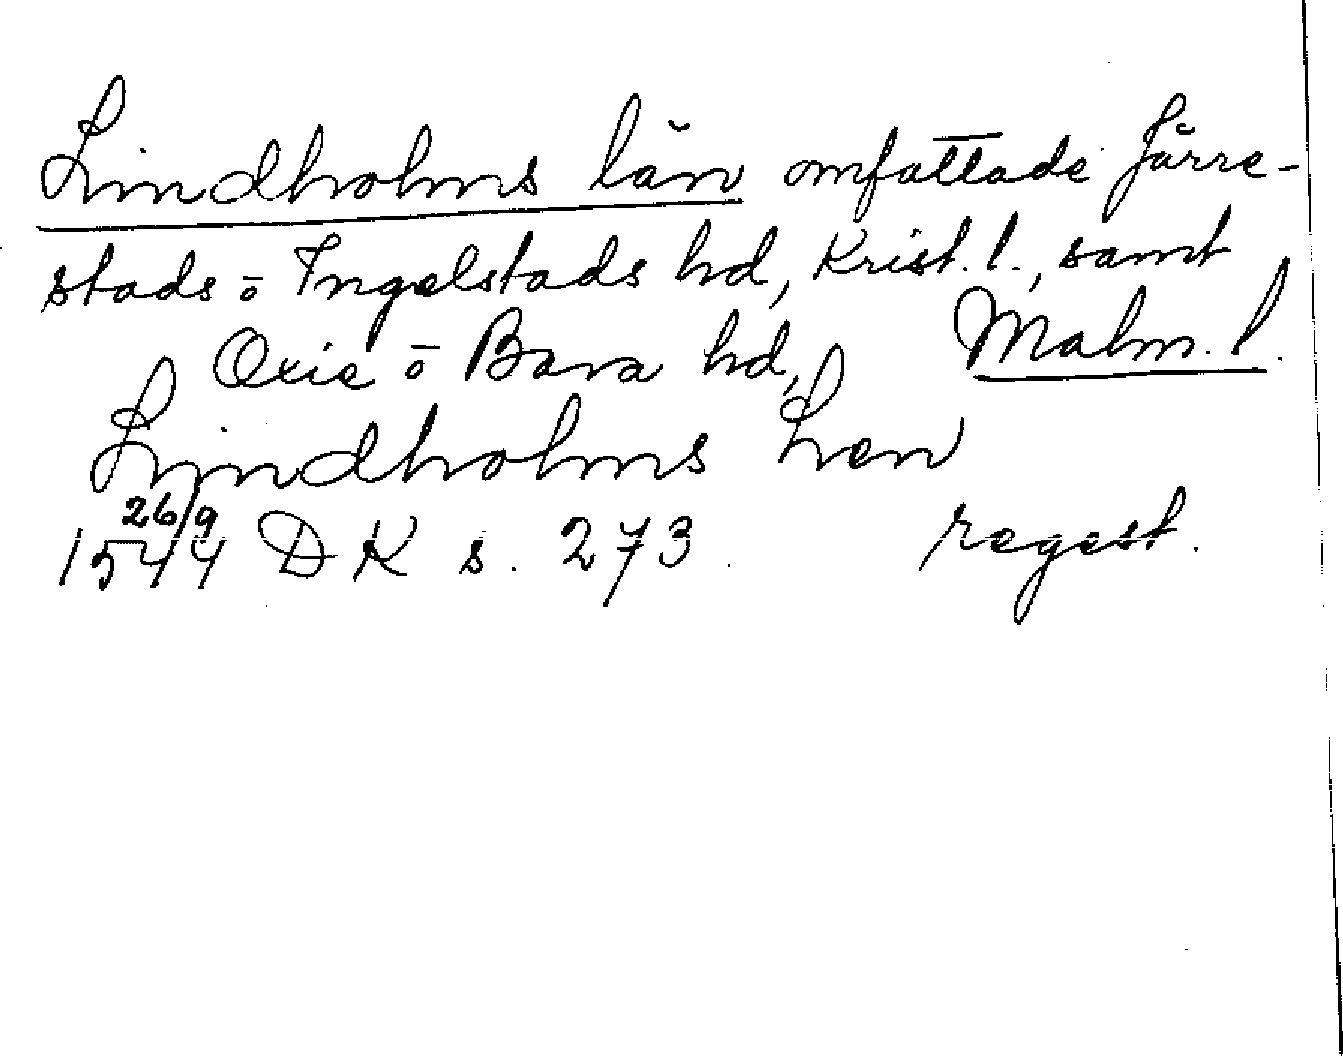 Lindholms län omfattade Järre-
stads o Ingelstads hd, Krist. l., samt
Oxie o Bara hd, Malm. l.
Lindholms Len
1544 26/9 DK s. 273. regest.